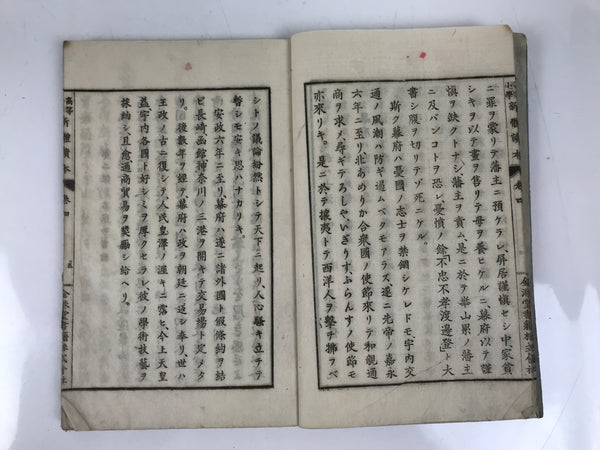 ニ罪ヲ蒙リテ藩主ニ預ケラレ、屏居謹愼セシ中、家貧
シキヲ以テ畫ヲ售リテ母ヲ養ヒケルニ、幕府以テ謹
愼ヲ缺クトナシ、藩主ヲ責ム、是ニ於テ華山累ノ藩主
ニ及バンコトヲ恐レ、憂憤ノ餘「不忠不孝渡邊登」ト大
書シ腹ヲ切リテゾ死ニケル。
斯ク幕府ハ憂國ノ志士ヲ禁錮シケレドモ、宇內交
通ノ風潮ハ防ギ遏ムベクモアラズ、遂ニ先帝ノ嘉永
六年ニ至リ、北あめりか合衆國ノ使節來リテ和親通
商ヲ求メ、尋ギテろしや、いぎりす、ふらんすノ使節モ
亦來リキ。是ニ於テ攘夷トテ西洋人ヲ擊チ拂フベ
シトノ議論紛然トシテ天下ニ起リ、人心騷キ立チテ
暫シモ安キ思ハナカリキ。
安政六年ニ至リ、幕府ハ遂ニ諸外國ト假條約ヲ結
ビ、長崎函館神奈川ノ三港ヲ開キテ交易場ト定メタ
リ。後數年ヲ經テ幕府ハ政ヲ朝廷ニ返シ奉リ、世ハ
王政ノ古ニ復シテ人民皇澤ノ渥キニ露ヒ、今上天皇
益宇內各國ト好シミヲ厚クセラレ、彼ノ學術技藝ヲ
採納シ、且愈通商貿易ヲ奬勵シ給ヘリ。
高等
新體讀本
卷四